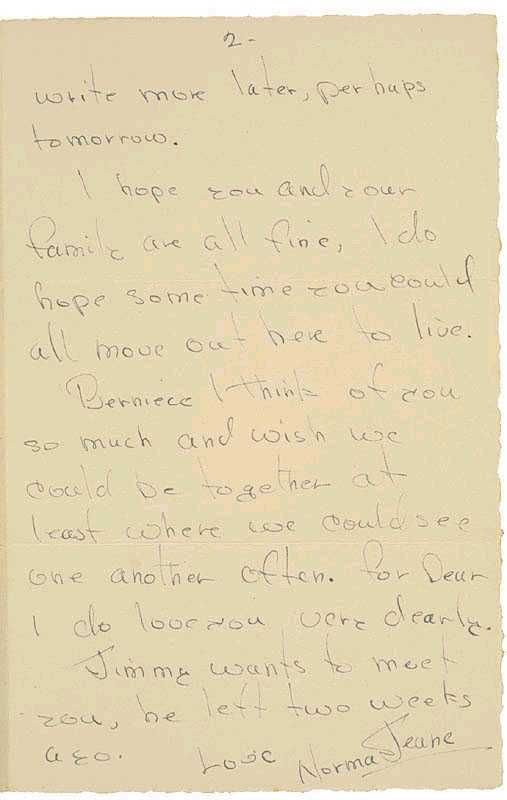 2-
write more later, perhaps
tomorrow.
I hope you and your
family are all fine, I do
hope some time you could
all move out here to live.
Berniece I think of you
so much and wish we
could be together at
least where we could see
one another often. for Dear
I do love you very dearly.
Jimmy wants to meet
you, he left two weeks
ago. Love Norma Jeane